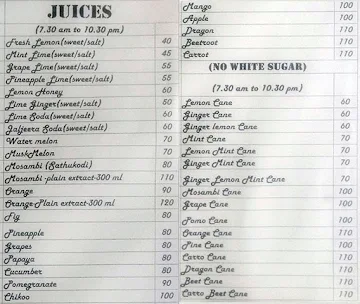 JUICES
(7.30 am to 10.30 pm)
Fresh Lemon(sweet/salt) 40
Mint Lime(sweet/salt) 45
Grape Lime(sweet/salt) 55
Pineapple Lime(sweet/salt) 55
Lemon Honey 60
Lime Ginger(sweet/salt) 50
Lime Soda(sweet/salt) 60
Jaljeera Soda(sweet/salt) 60
Water melon 70
MuskMelon 70
Mosambi (Sathukodi) 80
Mosambi -plain extract-300 ml 110
Orange 90
Orange-Plain extract-300 ml 120
Fig 80
Pineapple 80
Grapes 80
Papaya 80
Cucumber 80
Pomegranate 90
Chikoo 100
Mango 100
Apple 100
Dragon 110
Beetroot 110
Carrot 110
(NO WHITE SUGAR)
(7.30 am to 10.30 pm)
Lemon Cane 60
Ginger Cane 60
Ginger lemon Cane 60
Mint Cane 70
Lemon Mint Cane 70
Ginger Mint Cane 70
Ginger Lemon Mint Cane 70
Mosambi Cane 100
Grape Cane 100
Pomo Cane 100
Orange Cane 110
Pine Cane 100
Carro Cane 110
Dragon Cane 110
Beet Cane 110
Carro Beet Cane 110